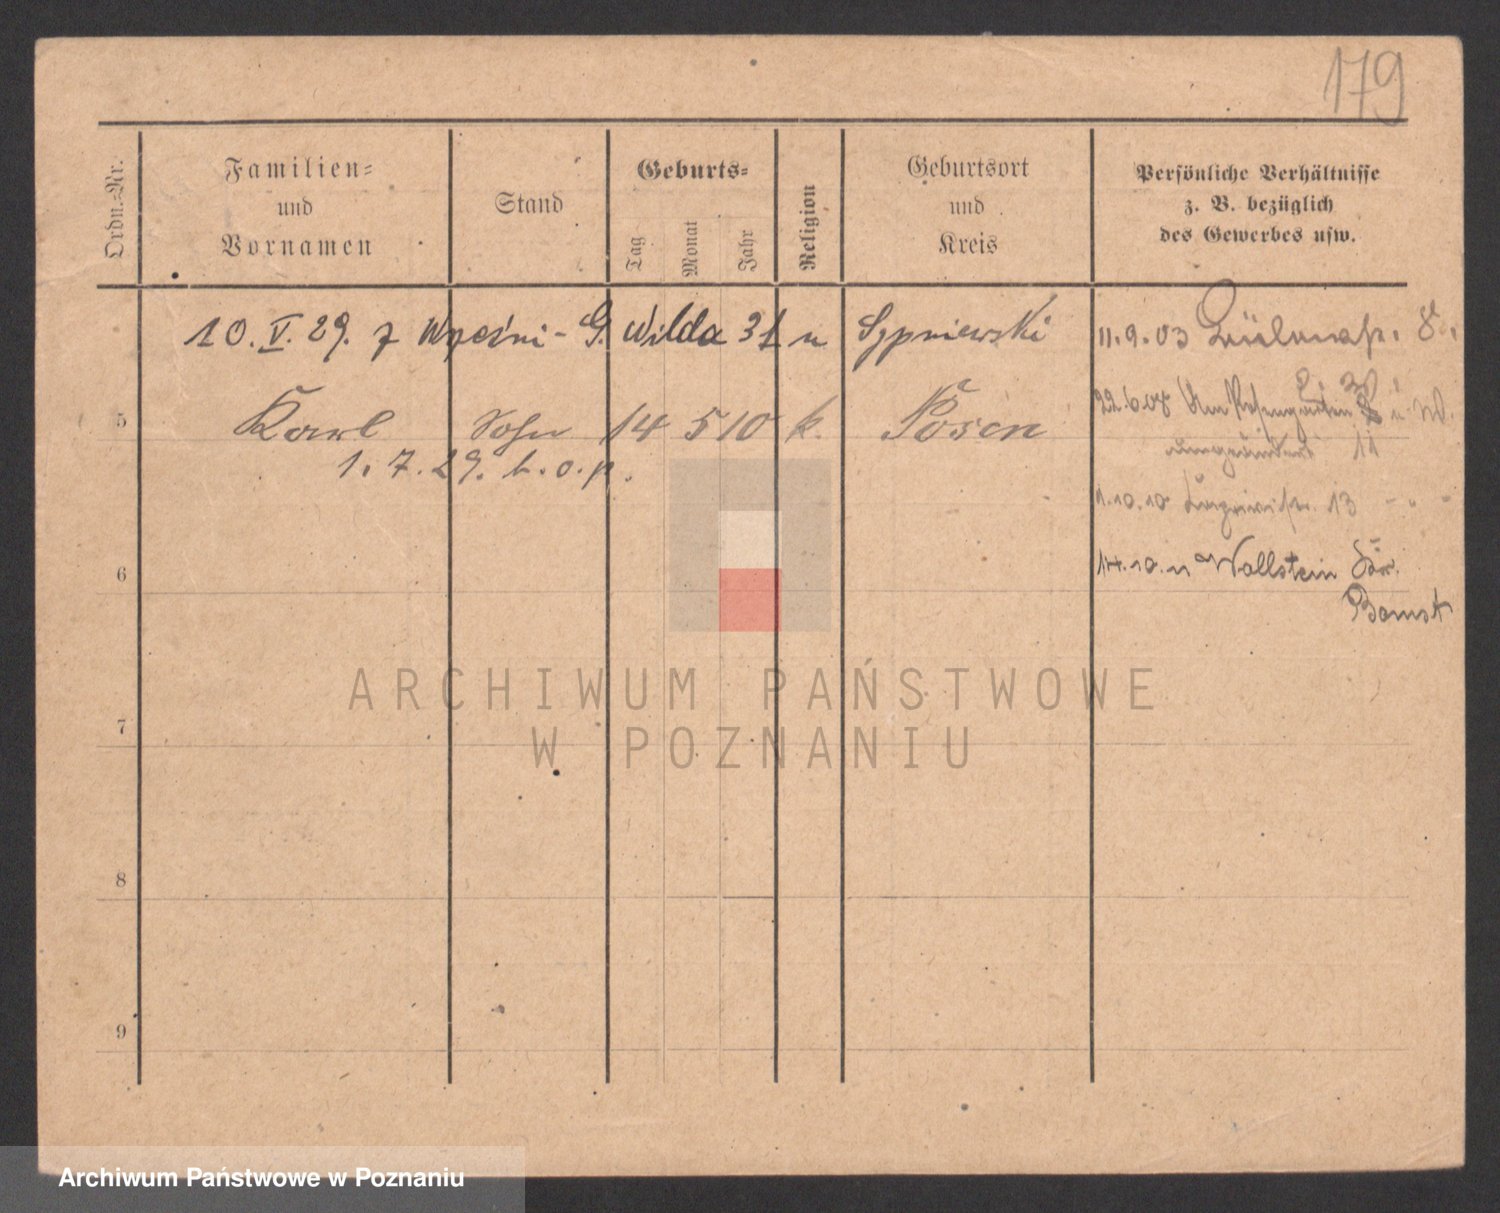 179
Ordn.-Nr.
Familien-
und
Vornamen
Stand
Geburts-
Tag
Monat
Jahr
Religion
Geburtsort
und
Kreis
Persönliche Verhältnisse
z. B. bezüglich
des Gewerbes usw.
10. V. 29. z Wrześni - G. Wilda 31 u Sypniewski
11.9.03
5 Karl Sohn 14 5 10 k. Posen
22.6.08 Am
1.7.29. b. o. p.
11
1.10.10 13 - " -
6
14.10.11 Wollstein
Bomst
ARCHIWUM PAŃSTWOWE
W POZNANIU
7
8
9
Archiwum Państwowe w Poznaniu